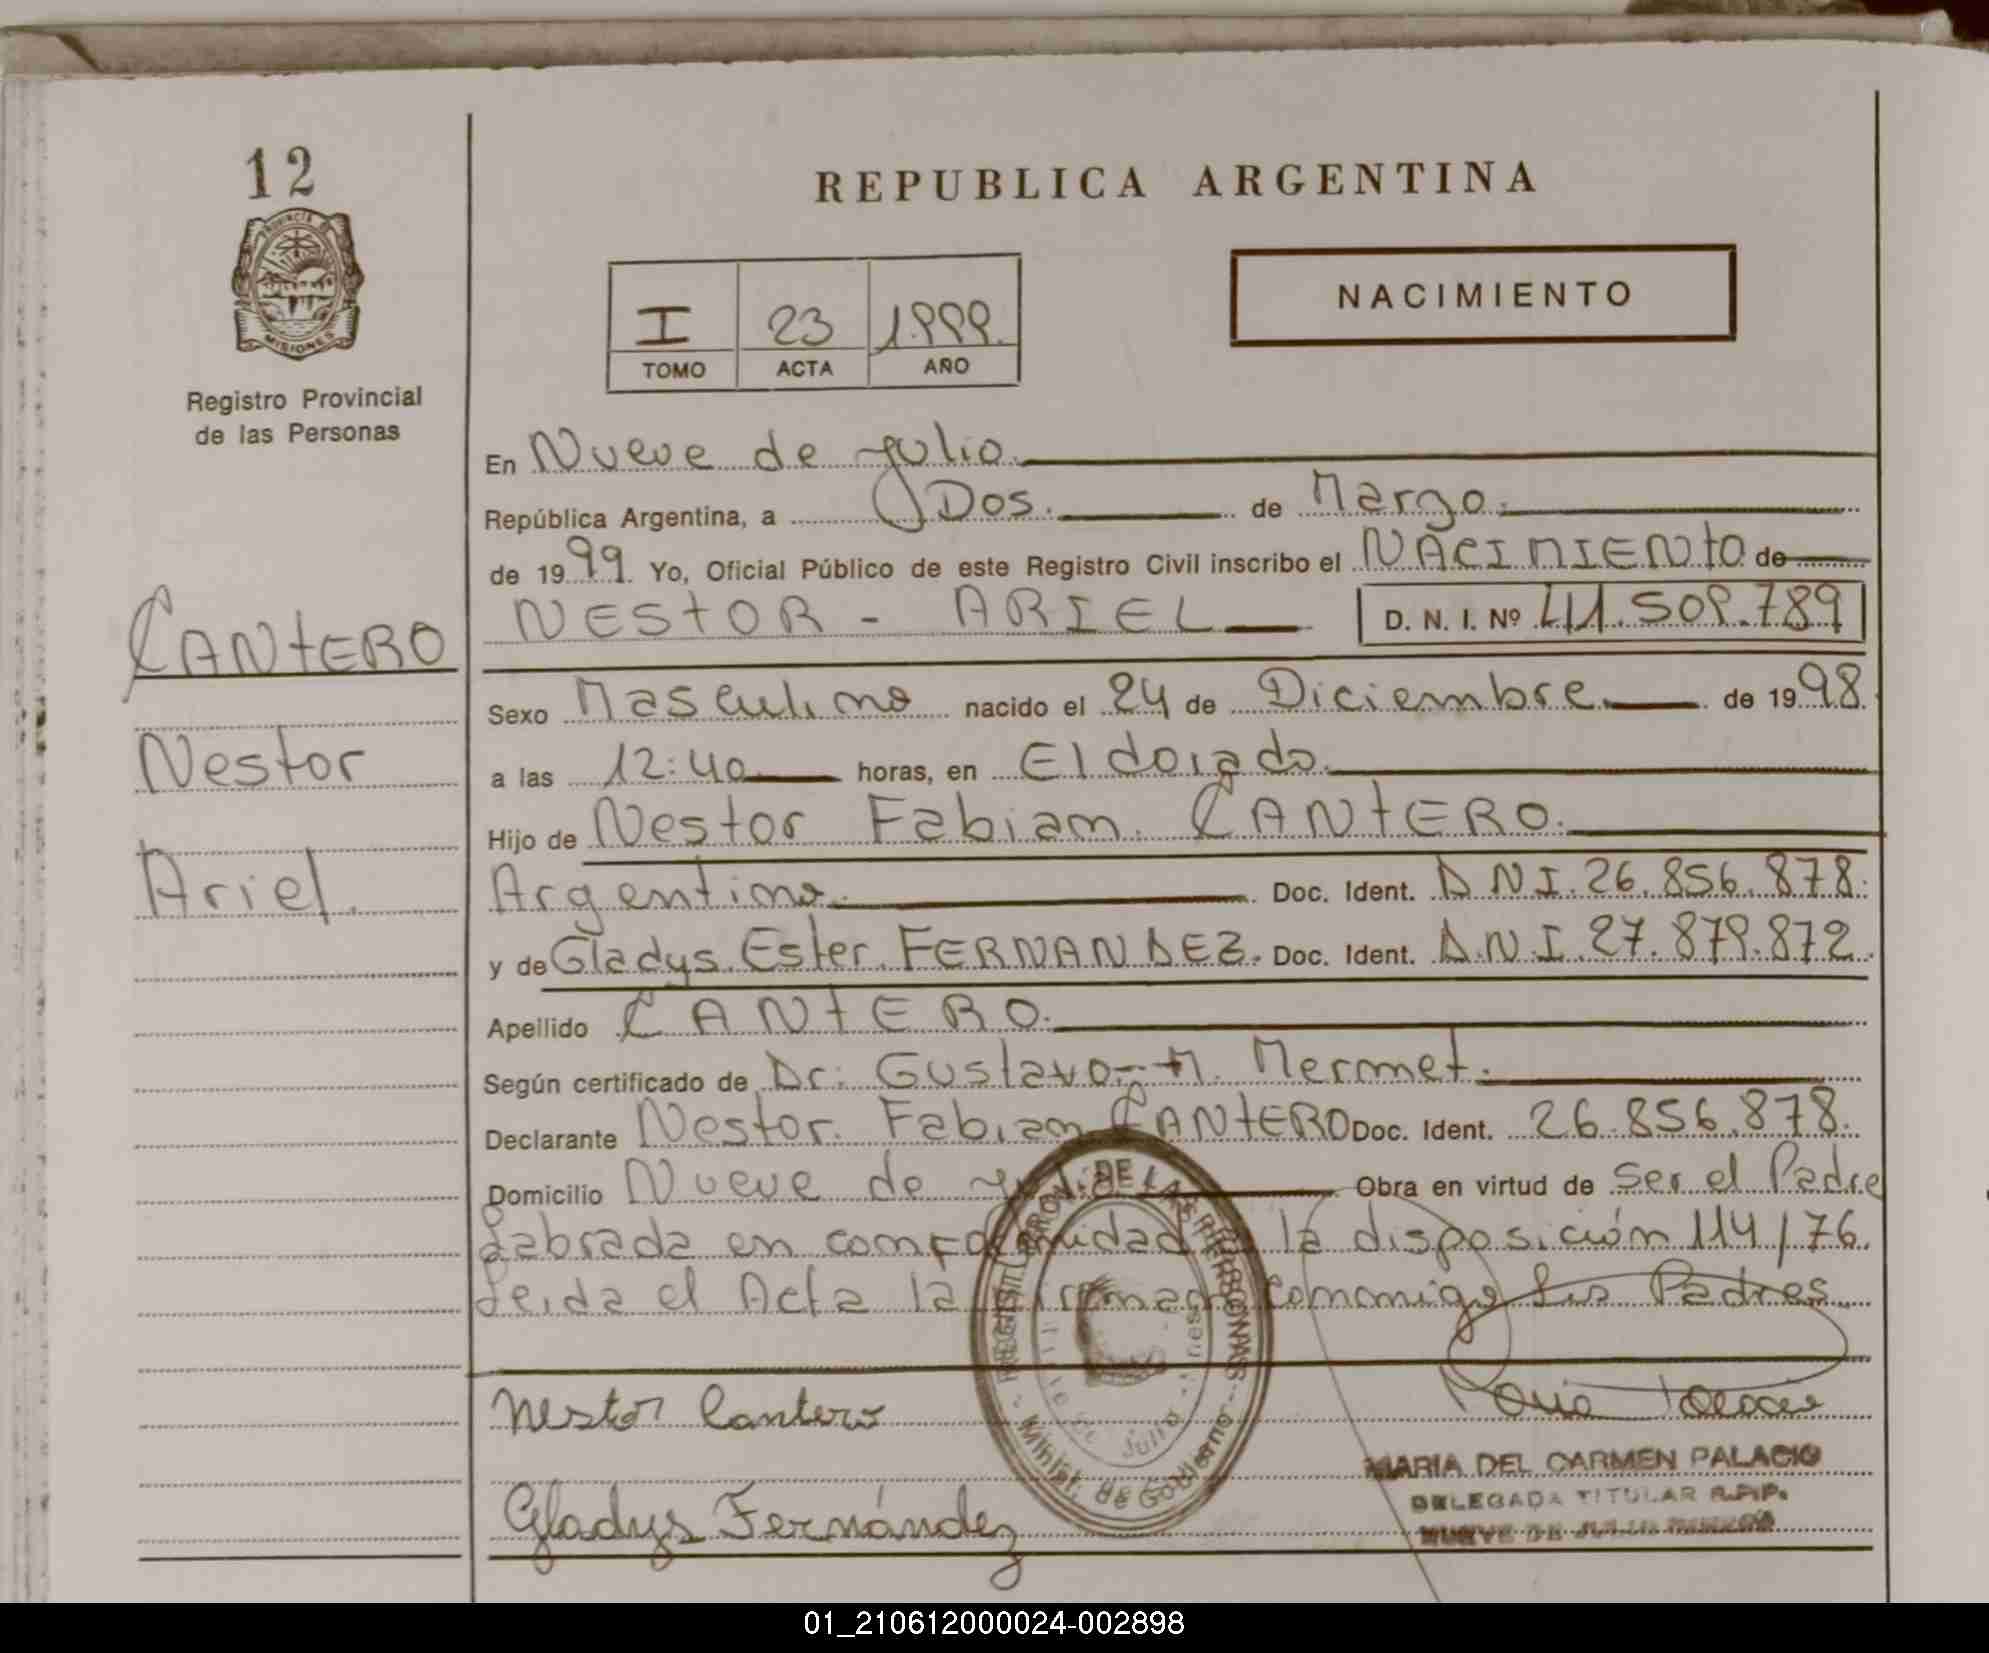 12
PROVINCIA DE
MISIONES
Registro Provincial
de las Personas
CANTERO
Nestor
Ariel.
REPUBLICA ARGENTINA
NACIMIENTO
I 23 1.999.
TOMO ACTA AÑO
En Nueve de julio.
República Argentina, a Dos. de Marzo.
de 1999. Yo, Oficial Público de este Registro Civil inscribo el NACIMIENTO de
NESTOR - ARIEL D. N. I. Nº 41.509.789
Sexo Masculino nacido el 24 de Diciembre. de 1998.
a las 12:40 horas, en Eldorado.
Hijo de Nestor Fabian. CANTERO.
Argentino. Doc. Ident. D.N.I. 26.856.878.
y de Gladys Ester. FERNANDEZ. Doc. Ident. D.N.I. 27.879.872.
Apellido CANTERO.
Según certificado de Dr. Gustavo M. Mermet.
Declarante Nestor. Fabian CANTERO Doc. Ident. 26.856.878.
Domicilio Nueve de julio Obra en virtud de ser el Padre
Labrada en conformidad a la disposición 114/76.
Leida el Acta la firman conmigo sus Padres
Nestor Cantero
Gladys Fernández
REGIST. PROV. DE LAS PERSONAS
Minist. de Gobierno
Julio
MARIA DEL CARMEN PALACIO
DELEGADA TITULAR R.P.P.
NUEVE DE JULIO MISIONES
01_210612000024-002898